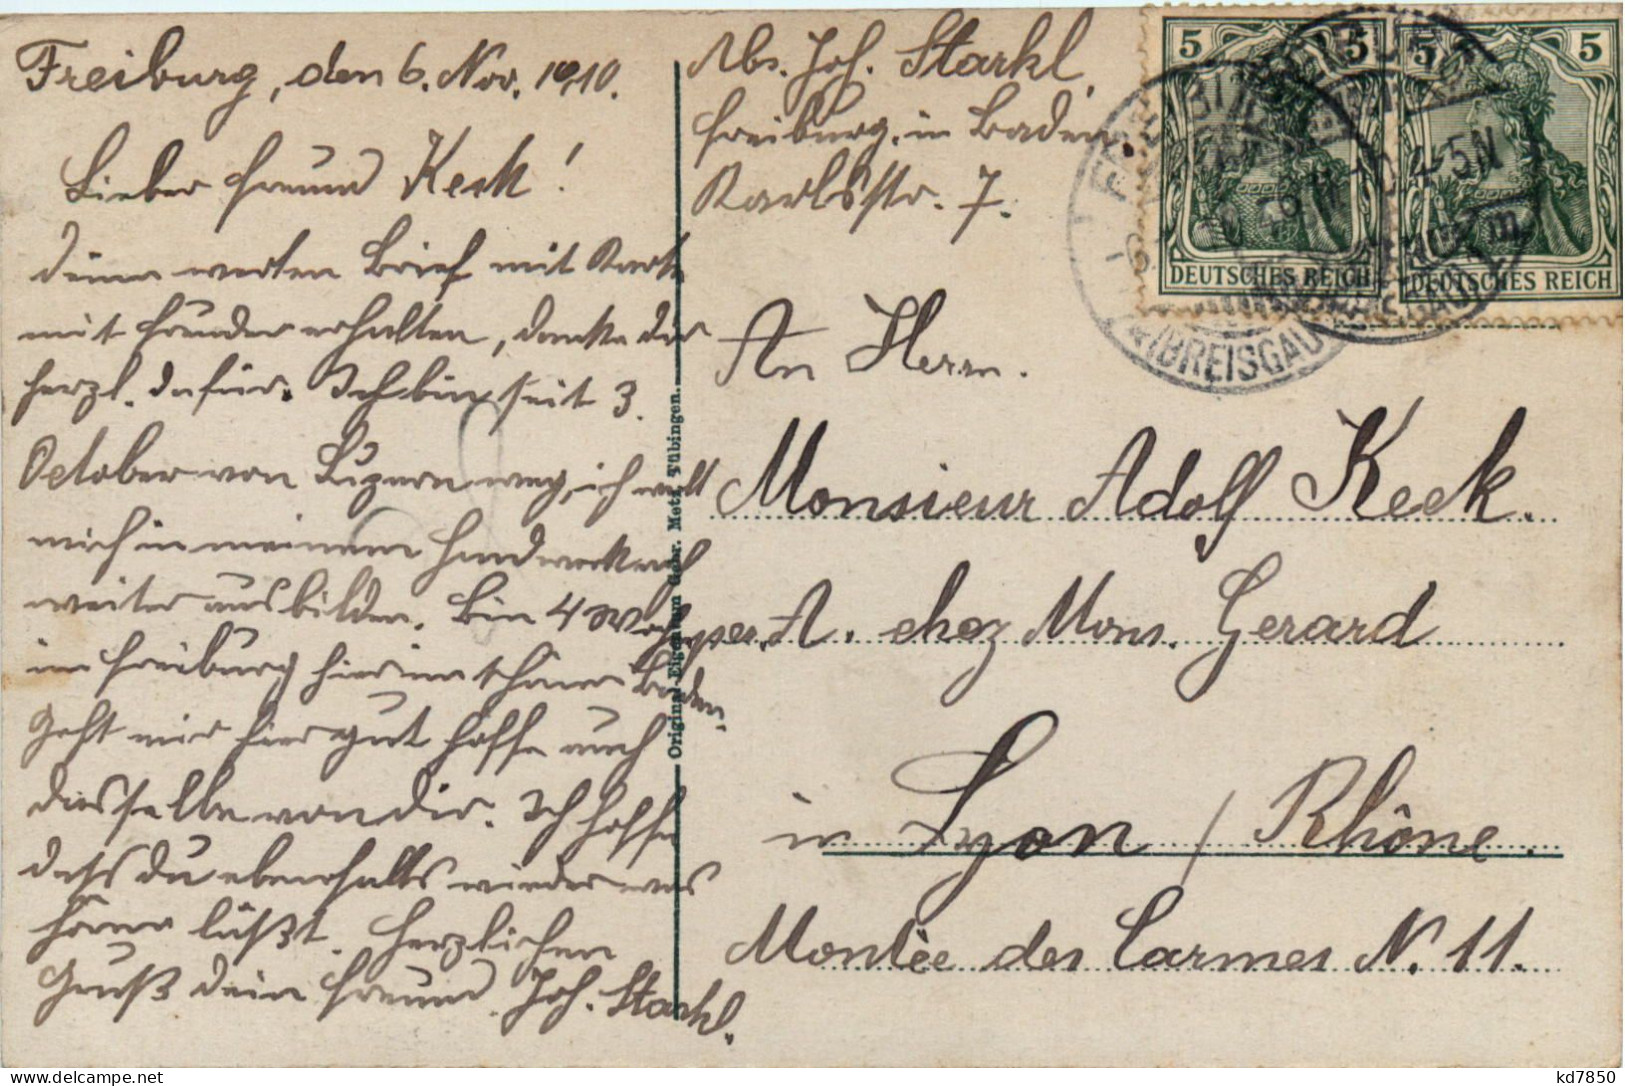 Freiburg, den 6. Nov. 1910.
Lieber Freund Keck!
Deinen werten Brief mit Karte
mit Freuden erhalten, danke dir
herzl. dafür. Ich bin seit 3.
October von Luzern weg, ich will
mich in meinem Handwerk noch
weiter ausbilden. Bin 4 Wochen
in Freiburg hier im schönen Baden.
Geht mir hier gut hoffe auch
dasselbe von dir. Ich hoffe
dass du ebenfalls wieder was
hören läßt. Herzlichen
Gruß dein Freund Joh. Starkl.
Original-Eigentum Gebr. Metz, Tübingen.
Abs. Joh. Starkl,
Freiburg, in Baden
Karlsstr. 7.
5 5 5 5
DEUTSCHES REICH DEUTSCHES REICH
(BREISGAU)
4-5N
An Herrn.
Monsieur Adolf Keck.
A. chez Mons. Gerard
in Lyon / Rhône.
Montée des Carmes N. 11.
kd7850